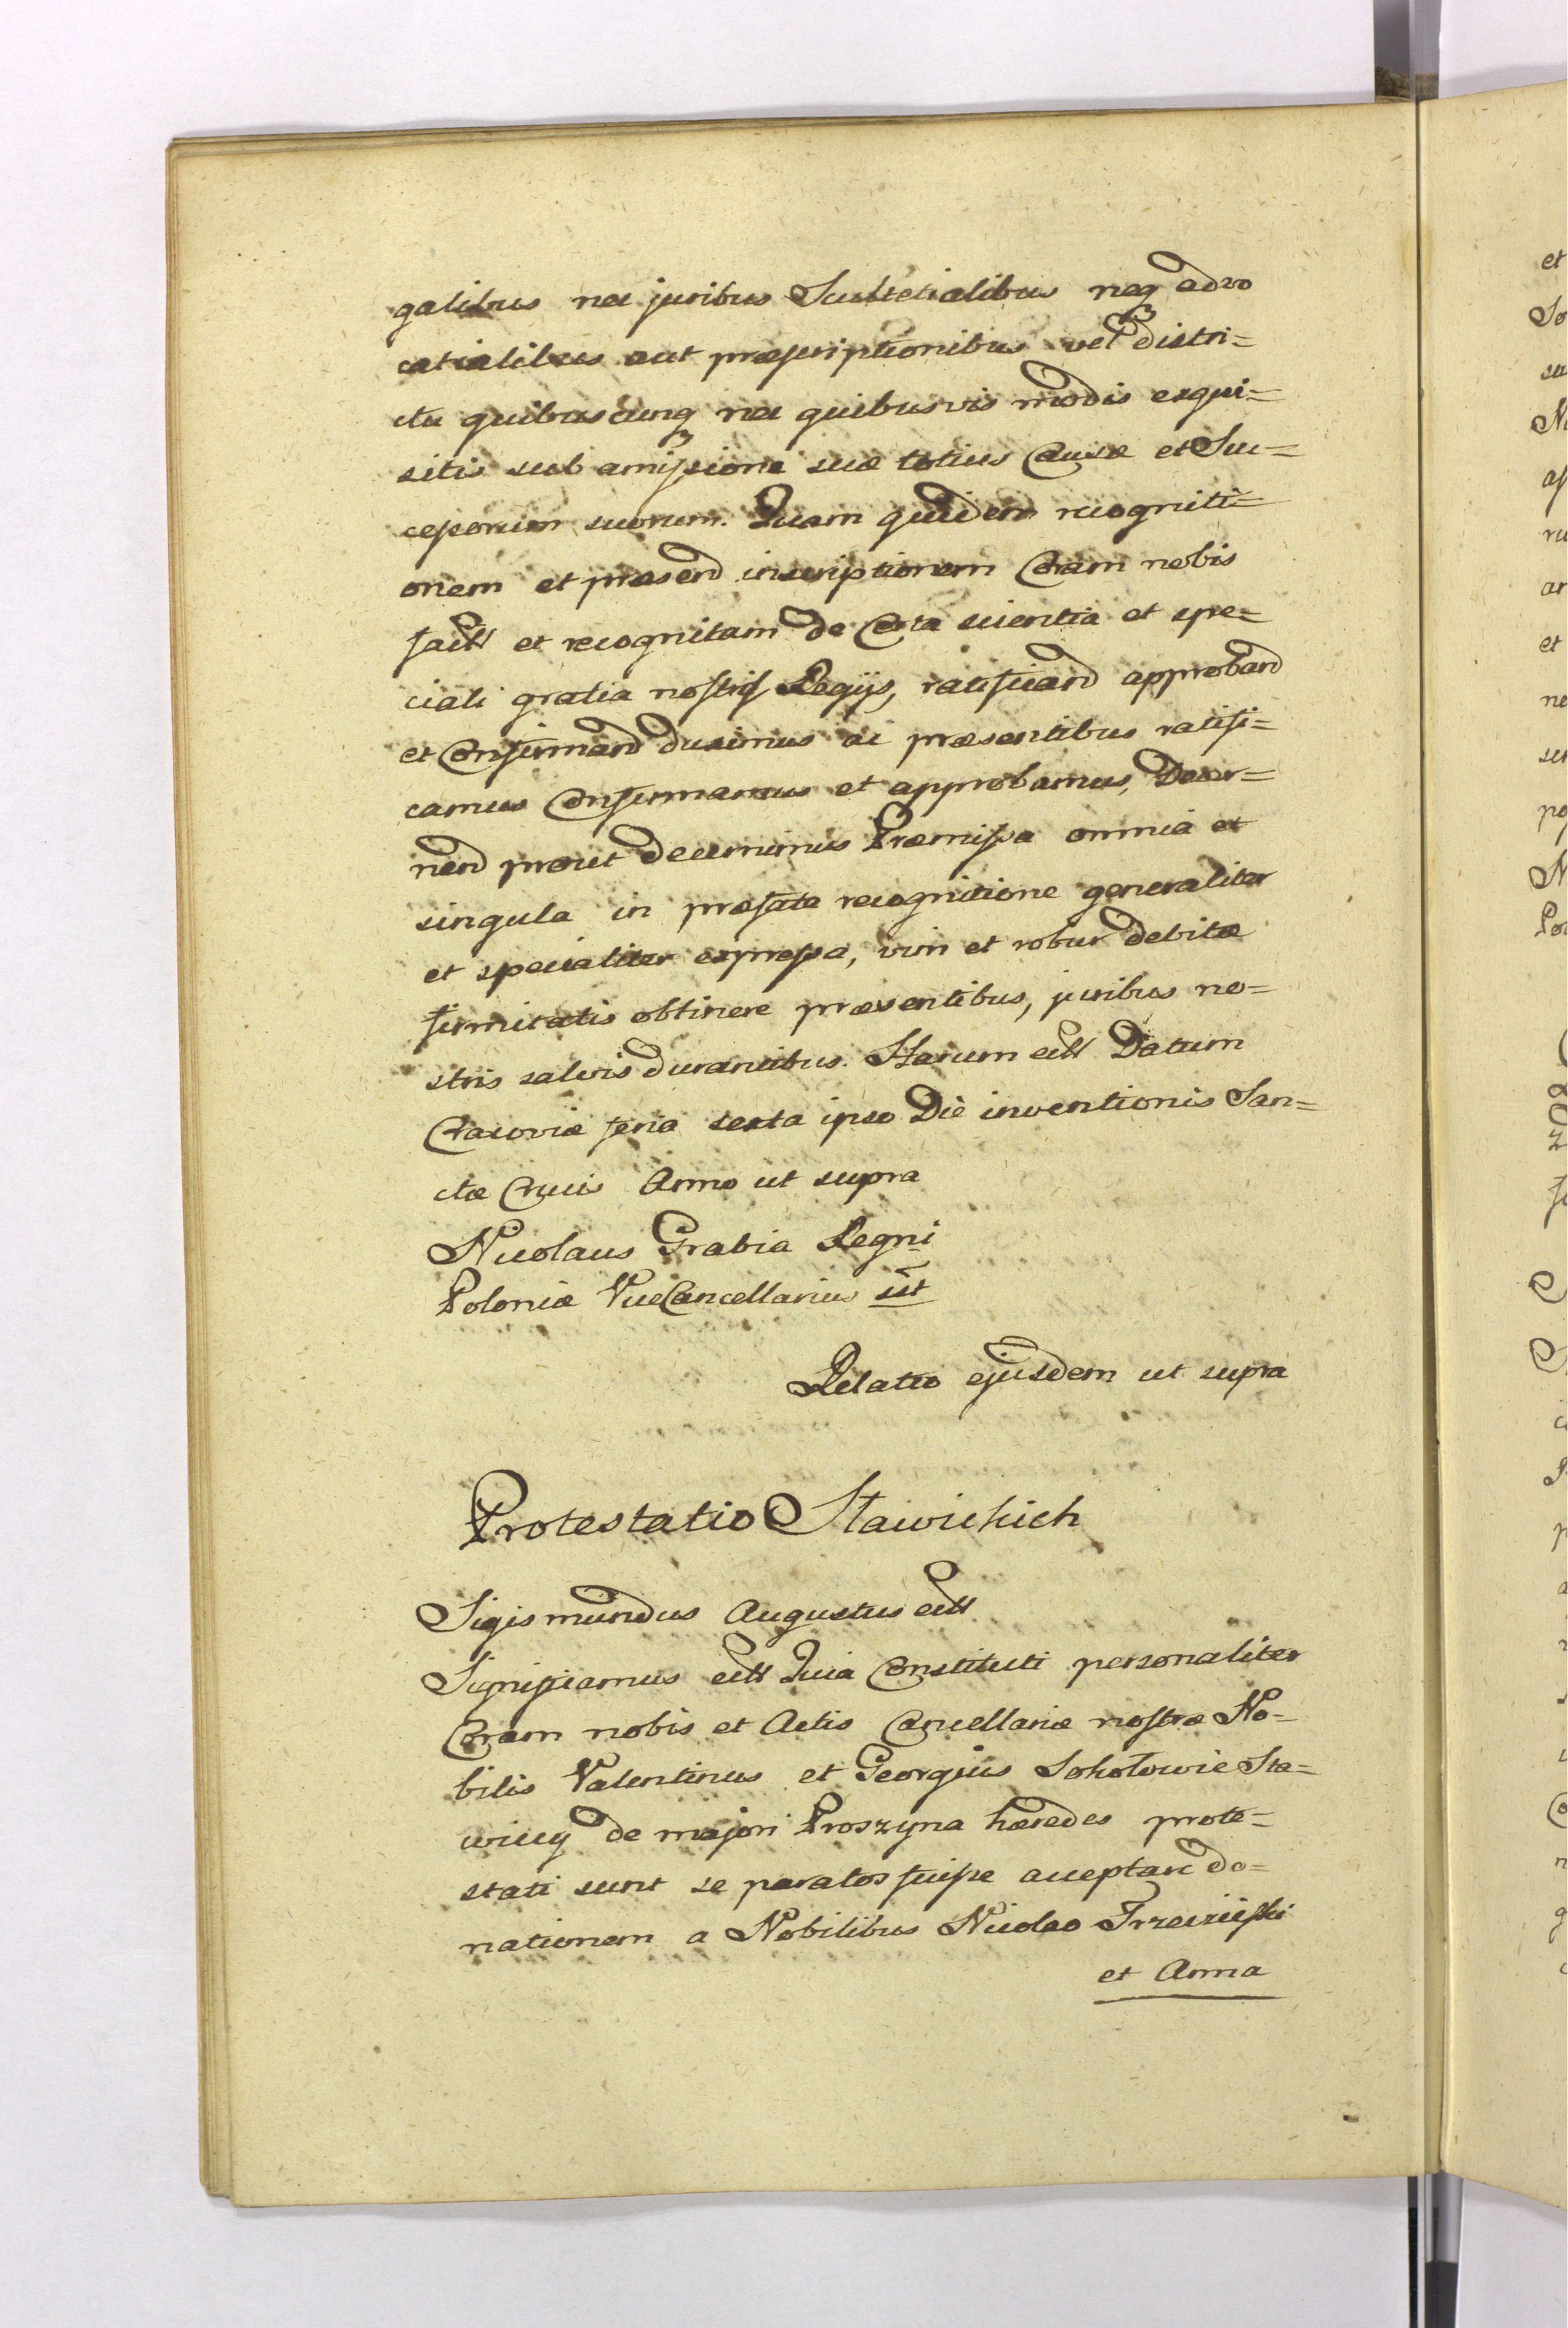 galibus nec juribus Scultetialibus neq3 advo
catialibus aut præscriptionibus vel distri=
ctu quibuscunq3 nec quibusvis modis exqui=
sitis sub amissione suæ totius Causæ et Suc=
cessorum suorum. Quam quidem recogniti=
onem et præsend inscriptionem Coram nobis
factt et recognitam de Certa scientia et spe=
ciali gratia nostris Regijs, ratificand approband
et Confirmand duximus ac præsentibus ratifi=
camus Confirmamus et approbamus, Decer=
nend prout decernimus Præmissa omnia et
singula in præfata recognitione generaliter
et specialiter expressa, vim et robur debitæ
firmitatis obtinere præsentibus, juribus no=
stris salvis durantibus. Harum ett Datum
Cracoviæ feria sexta ipso Die inventionis San=
ctæ Crucis Anno ut supra
Nicolaus Grabia Regni
Poloniæ ViceCancellarius sst
Relatio ejusdem ut supra
Protestatio Stawickich
Sigismundus Augustus ett
Significamus ett Quia Constituti personaliter
Coram nobis et Actis Cancellariæ nostræ No=
bilis Valentinus et Georgius Sokołowie Sta=
wiccy de majori Proszyna hæredes prote=
stati sunt se paratos fuisse acceptare do=
nationem a Nobilibus Nicolao
et Anna